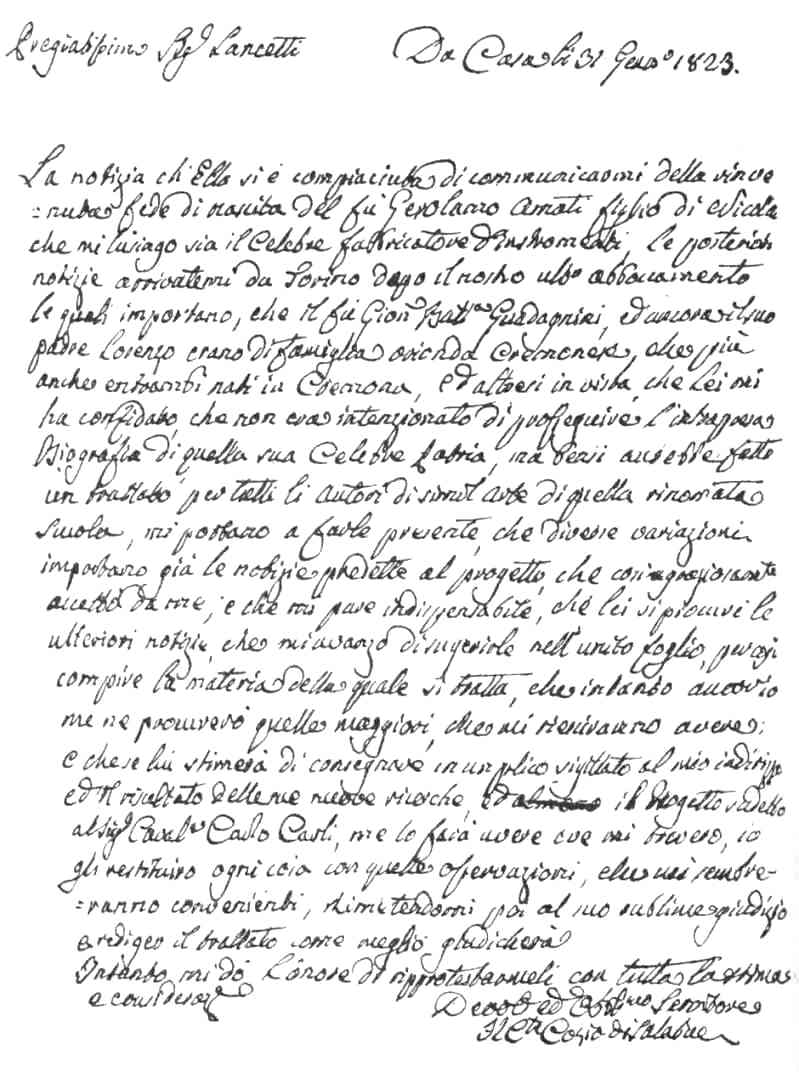 Pregiatissimo Sigr Lancetti
Da Casa li 31 Genro 1823.
La notizia ch'Ella si è compiaciuta di communicarmi della rinve
=nuta fede di nascita del fù Gerolamo Amati figlio di Nicola
che mi lusingo sia il Celebre fabbricatore d'Instromenti, le posteriori
notizie arrivatemi da Torino dopo il nostro ulto abboccamento
le quali importano, che il fù Gion Batta Guadagnini, ed ancora il suo
padre Lorenzo erano di famiglia orionda Cremonese, che più
anche entrambi nati in Cremona, ed altresi in vista, che Lei mi
ha confidato, che non era intenzionato di prosseguire l'intrapresa
Biografia di quella sua Celebre Patria, ma bensi avrebbe fatto
un trattato per tutti li autori di simil arte di quella rinomata
Scuola, mi portano a farle presente, che diverse variazioni
importano già le notizie predette al progetto, che con
accettò da me, e che mi pare indispensabile, che lei si procuri le
ulteriori notizie, che mi avanzo di sugerirle nell'unito foglio, per così
compire la materia della quale si tratta, che intanto ancor io
me ne procurerò quelle maggiori, che mi rieniranno avere;
e che se lei stimerà di consegnare in un plico sigillato al mio indirizzo
ed il risultato delle sue nuove ricerche, ed almeno il Progetto sudetto
al Sigr Cavalre Carlo Carli, me lo farà avere ove mi troverò, io
gli restituirò ogni cosa con quelle osservazioni, che mi sembre-
=ranno convenienti, rimettendomi poi al suo sublime giudizio
a rediger il trattato come meglio giudicherà
Intanto mi dò l'onore di ripprotestarmeli con tutta la stima
e consideraze
Devoto ed Obblmo Servitore
Il Cte Cozio di Salabue